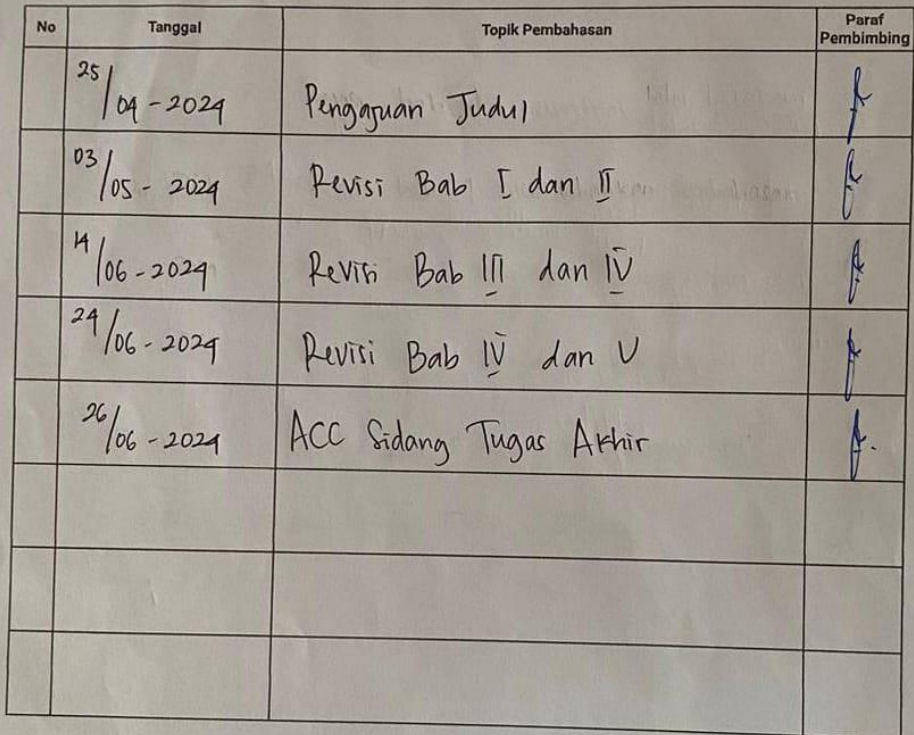 No Tanggal Topik Pembahasan Paraf Pembimbing
25/04-2024 Pengajuan Judul
03/05- 2024 Revisi Bab I dan II
14/06-2024 Revisi Bab III dan IV
24/06-2024 Revisi Bab IV dan V
26/06-2024 ACC Sidang Tugas Akhir